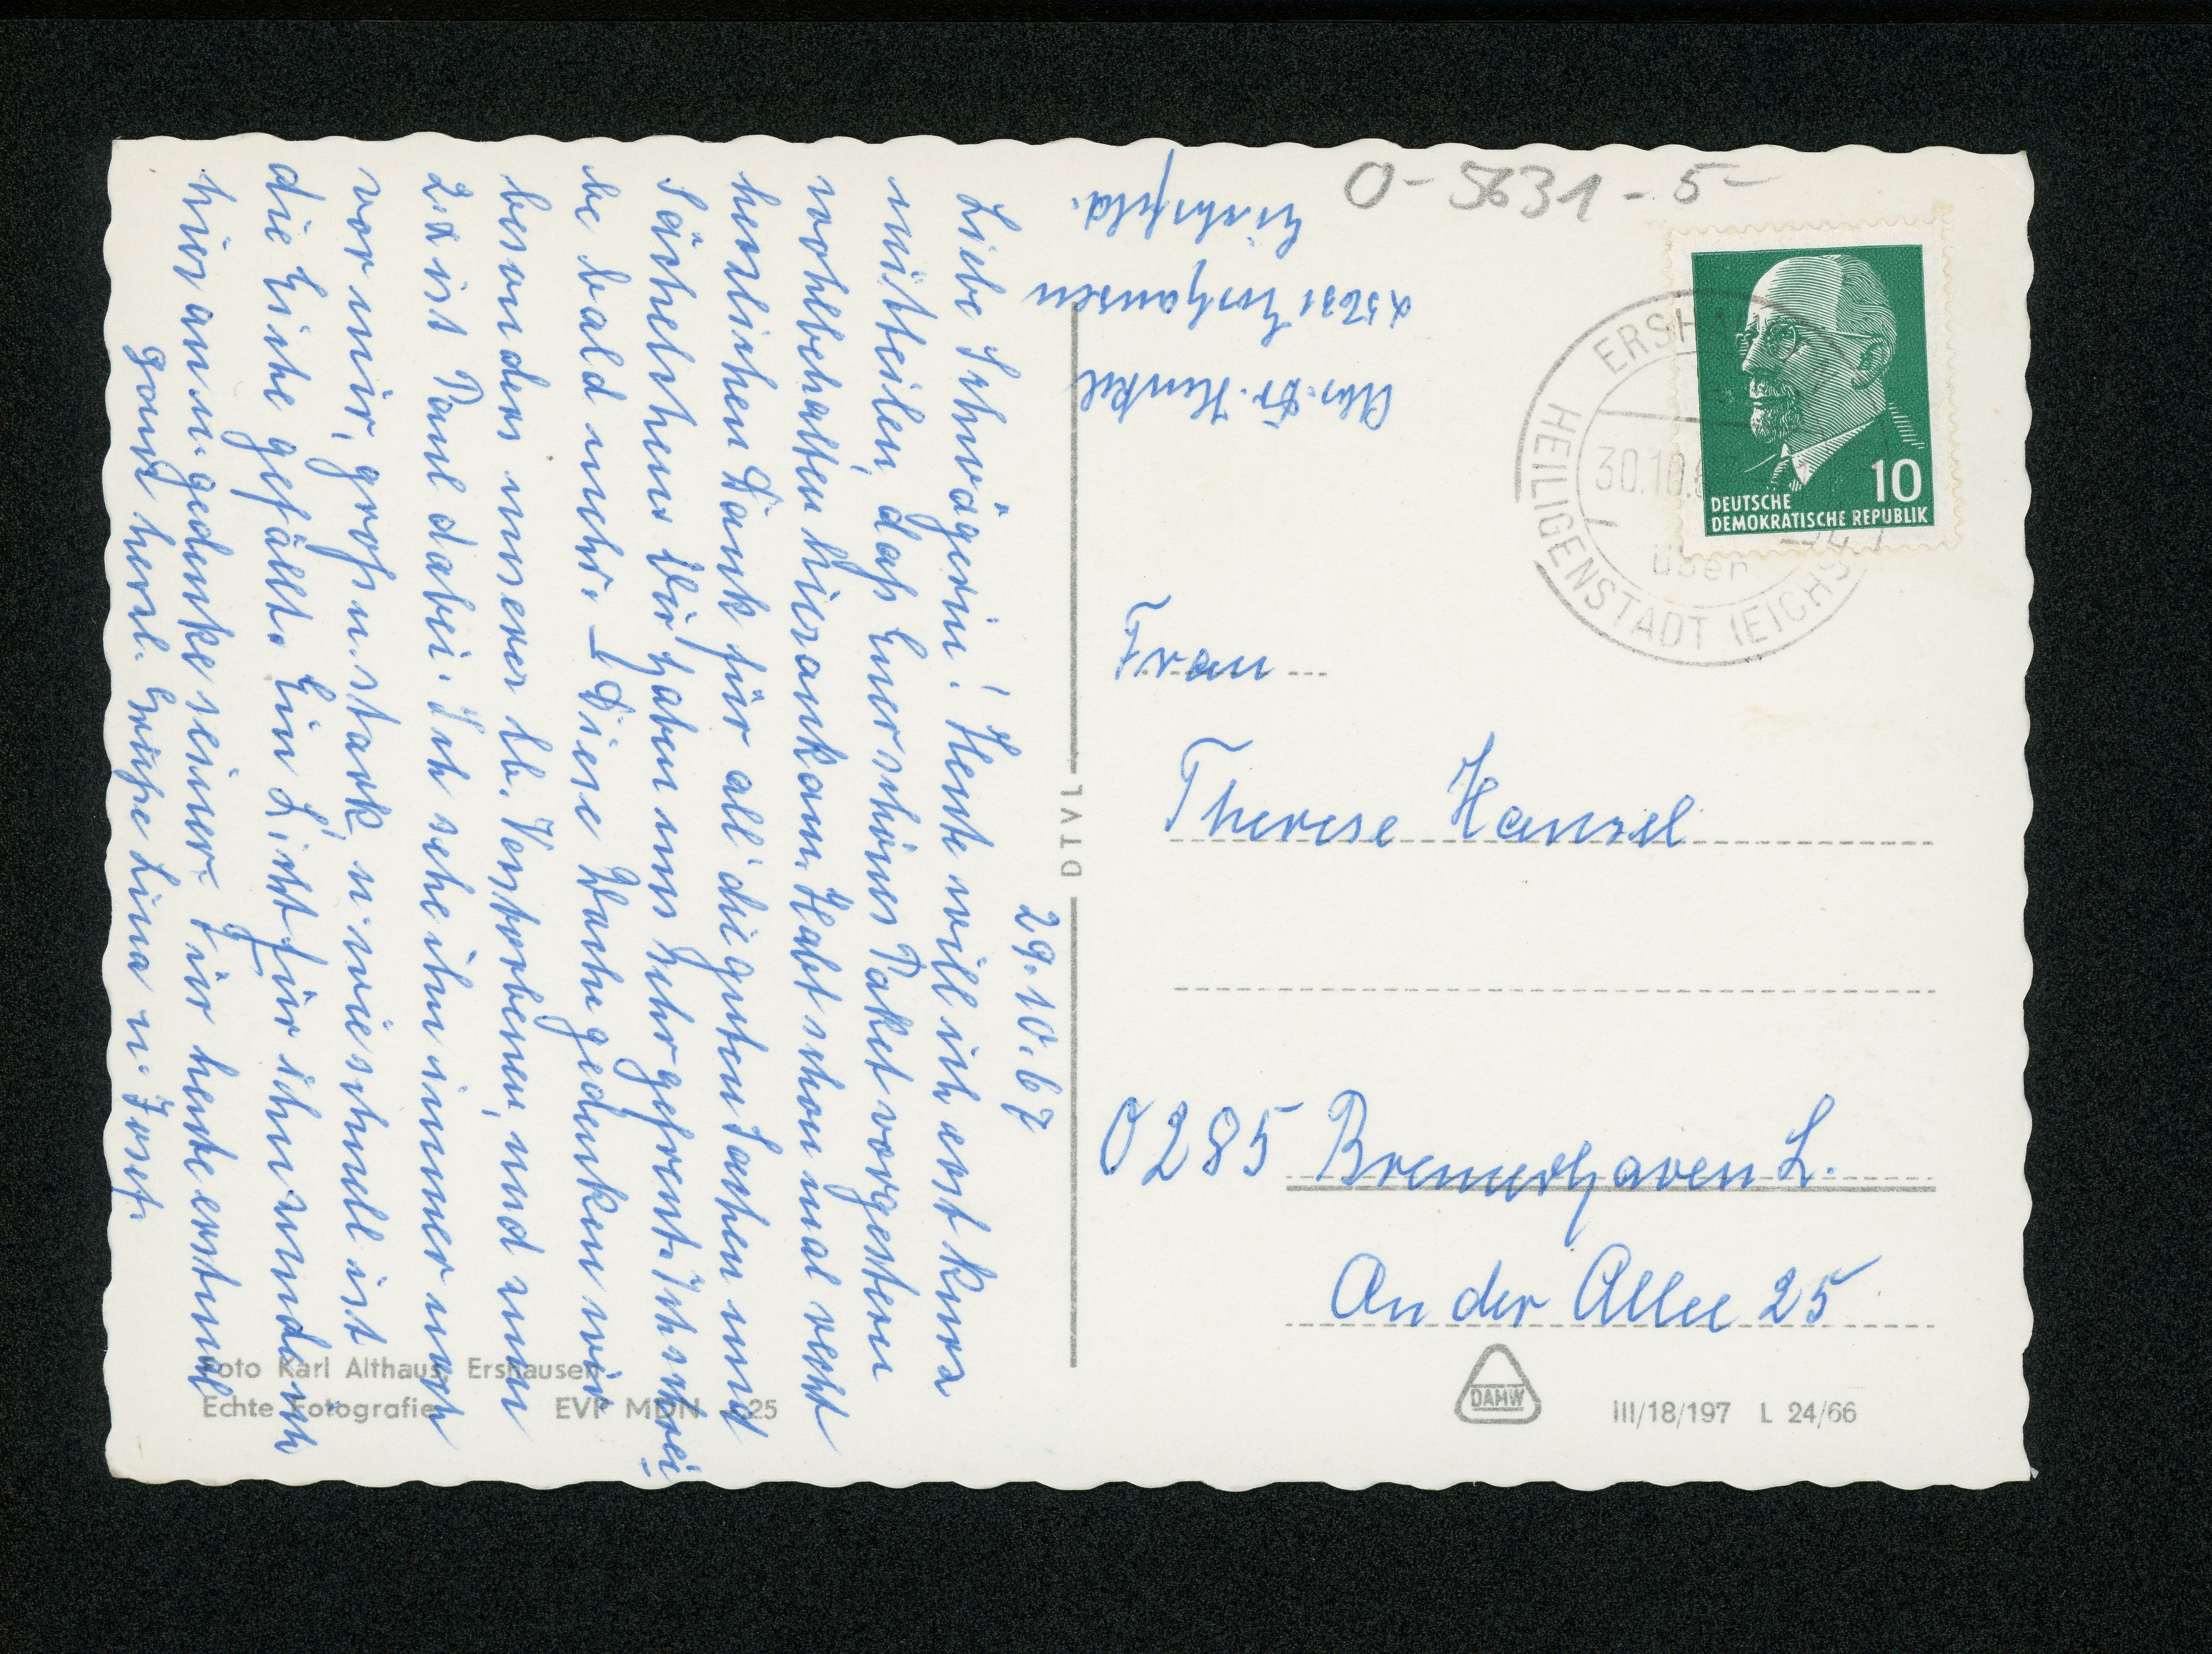 O-5631-5-
Abs. Fr. Henkel
x 5631 Ershausen
Eichsfeld.
DEUTSCHE
DEMOKRATISCHE REPUBLIK
10
ERSHAUSEN
30.10.67
über
HEILIGENSTADT (EICHSF)
29. 10. 67
Liebe Schwägerin! Heute will ich erst kurz
mitteilen, daß Euer schönes Paket vorgestern
wohlbehalten hier ankam. Habt schon mal recht
herzlichen Dank für all' die guten Sachen und
Sächelchen. Wir haben uns sehr gefreut. Ich schrei-
be bald mehr. – Diese Woche gedenken wir
besonders unserer lb. Verstorbenen, und nun
ist Paul dabei. Ich sehe ihn immer noch
vor mir, groß u. stark, u. wie schnell ist
die Eiche gefällt. Ein Licht für ihn zünde ich
hier an u. gedenke seiner. Für heute erstmal
ganz herzl. Grüße Lina u. Josef.
DTVL
Frau
Therese Hansel
0285 Bremerhaven L.
An der Allee 25
Foto Karl Althaus, Ershausen
Echte Fotografie EVP MDN -.25
DAMW
III/18/197 L 24/66